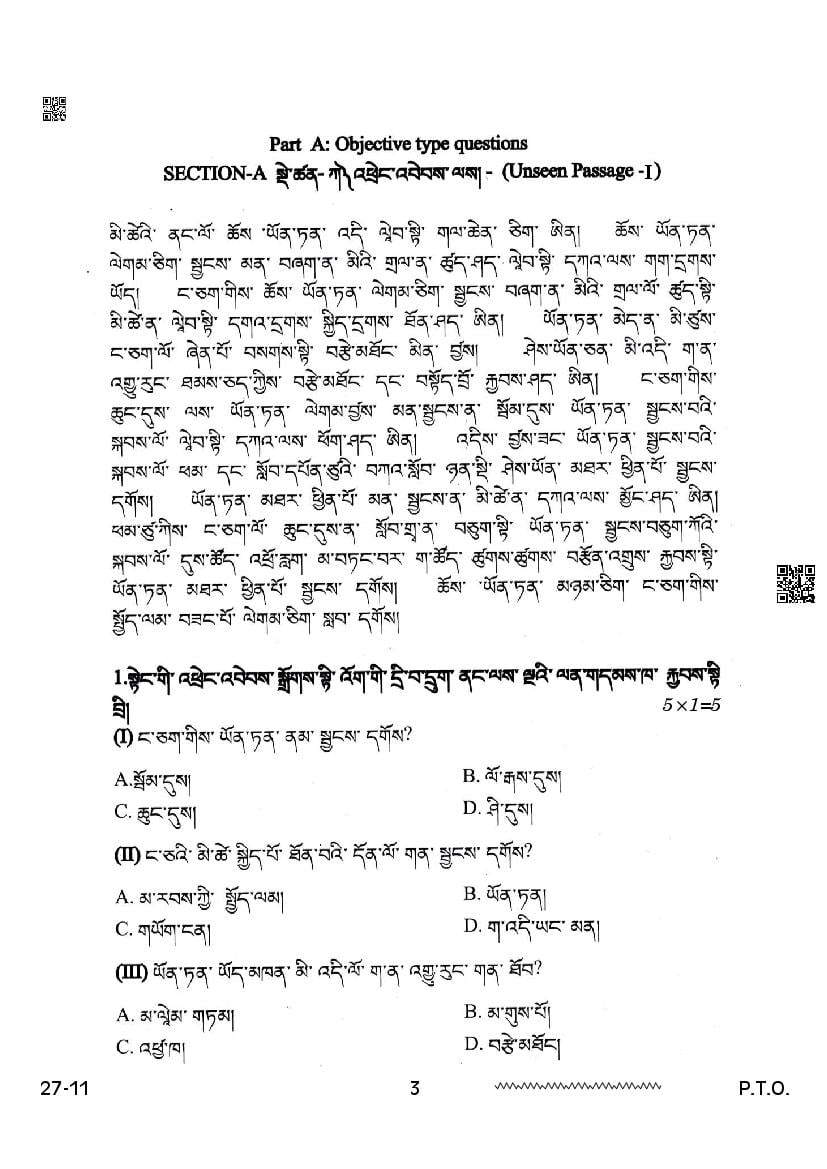 Part A: Objective type questions
SECTION-A སྡེ་ཚན- ཀ༽ འཕྲེང་འབེབས་ལས། - (Unseen Passage -I)
མི་ཚེའི་ ནང་ལོ་ ཆོས་ ་ཡོན་ཏན་ འདི་ ལྷེབ་སྟི་ གལ་ཆེན་ ཅིག་ ཨིན། ཆོས་ ཡོན་ཏན་
ལེགམ་ཅིག་ སྦྱངས་ མན་ བཞག་ན་ མིའི་ གྲལ་ན་ ཚུད་ཤད་ ལྷེབ་སྟི་ དཀའ་ལས་ གག་དྲགས་
ཡོད། ང་ཅག་གིས་ ཆོས་ ཡོན་ཏན་ ལེགམ་ཅིག་ སྦྱངས་ བཞག་ན་ མིའི་ གྲལ་ལོ་ ཚུད་སྟི་
མི་ཚེ་ན་ ལྷེབ་སྟི་ དགའ་དྲགས་ སྐྱིད་དྲགས་ ཐོན་ཤད་ ཨིན། ཡོན་ཏན་ མེད་ན་ མི་ཙུས་
ང་ཅག་ལོ་ ཞེན་པོ་ བསགས་སྟི་ བརྩེ་མཐོང་ མིན་ བྱས། ཤེས་ཡོན་ཅན་ མི་འདི་ ག་ན་
འགྱུ་རུང་ ཐམས་ཅད་ཀྱིས་ བརྩེ་མཐོང་ དང་ བསྟོད་བྲོ་ རྐྱབས་ཤད་ ཨིན། ང་ཅག་གིས་
ཆུང་དུས་ ལས་ ཡོན་ཏན་ ལེགམ་བྱས་ མན་སྦྱངས་ན་ སྦོམ་དུས་ ཡོན་ཏན་ སྦྱངས་བའི་
སྐབས་ལོ་ ལྷེབ་སྟི་ དཀའ་ལས་ ཕོག་ཤད་ ཨིན། འདིས་ བྱས་ཟང་ ཡོན་ཏན་ སྦྱངས་བའི་
སྐབས་ལོ་ ཕམ་ དང་ སློབ་དཔོན་ཙུའི་ བཀའ་སློབ་ ཉན་སྡི་ ཤེས་ཡོན་ མཐར་ ཕྱིན་པོ་ སྦྱངས་
དགོས། ཡོན་ཏན་ མཐར་ ཕྱིན་པོ་ མན་ སྦྱངས་ན་ མི་ཚེ་ན་ དཀའ་ལས་ མྱོང་ཤད་ ཨིན།
ཕམ་ཙུ་ཀིས་ ང་ཅག་ལོ་ ཆུང་དུས་ན་ སློབ་གྲྭ་ན་ བཅུག་སྟི་ ཡོན་ཏན་ སྦྱངས་བཅུག་ཀོའི་
སྐབས་ལོ་ དུས་ཚོད་ འཕྲོ་རླག་ མ་བཏང་བར་ ག་ཚོད་ ཚུགས་ཚུགས་ བརྩོན་འགྲུས་ རྐྱབས་སྟི་
ཡོན་ཏན་ མཐར་ ཕྱིན་པོ་ སྦྱངས་ དགོས། ཆོས་ ་ཡོན་ཏན་ མཉམ་ཅིག་ ང་ཅག་གིས་
སྤྱོད་ལམ་ བཟང་པོ་ ལེགམ་ཅིག་ སླབ་ དགོས།
1.སྟེང་གི་ འཕྲེང་འབེབས་ སྒྲོགས་སྟི་ འོག་གི་ དྲི་བ་དྲུག་ ནང་ལས་ ལྔའི་ ལན་གདམས་ཁ་ རྐྱབས་སྟི་
བྲི། 5×1=5
(I) ང་ཅག་གིས་ ཡོན་ཏན་ ནམ་ སྦྱངས་ དགོས?
A.སྦོམ་དུས། B. ལོ་རྒས་དུས།
C. ཆུང་དུས། D. ཤི་དུས།
(II) ང་ཅའི་ མི་ཚེ་ སྐྱིད་པོ་ ཐོན་བའི་ དོན་ལོ་ གན་ སྦྱངས་ དགོས?
A. མ་རབས་ཀྱི་ སྤྱོད་ལམ། B. ཡོན་ཏན།
C. གཡོག་ངན། D. ག་འདི་ཡང་ མན།
(III) ཡོན་ཏན་ ཡོད་མཁན་ མི་ འདི་ལོ་ ག་ན་ འགྱུ་རུང་ གན་ ཐོབ?
A. མ་ལྷེམ་ གཏམ། B. མ་གུས་པོ།
C. འཕྱ་ཁ། D. བརྩེ་མཐོང།
27-11 3 P.T.O.